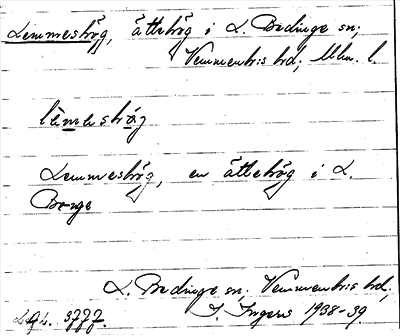 Lemmeshög, ättehög i L. Bedinge sn,
Vemmenhögs hd, Mlm. l.
lèmeshög
Lemmeshög, en ättehög i L.
Borge
L. Bedinge sn, Vemmenhögs hd,
I. Ingers 1938-39.
3777.